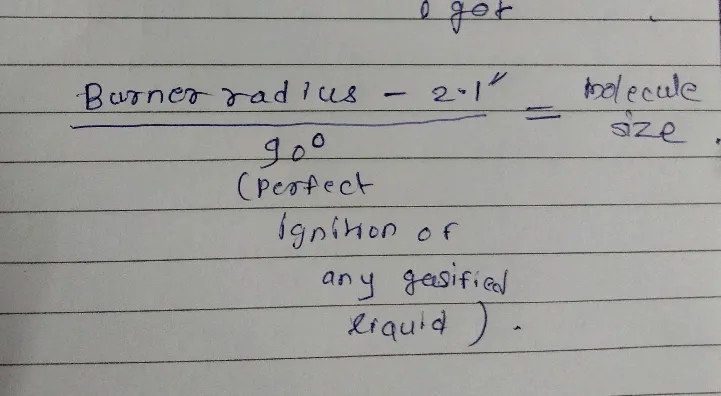 I got
Burner radius - 2.1" = molecule size.
90°
(Perfect
ignition of
any gasified
liquid).